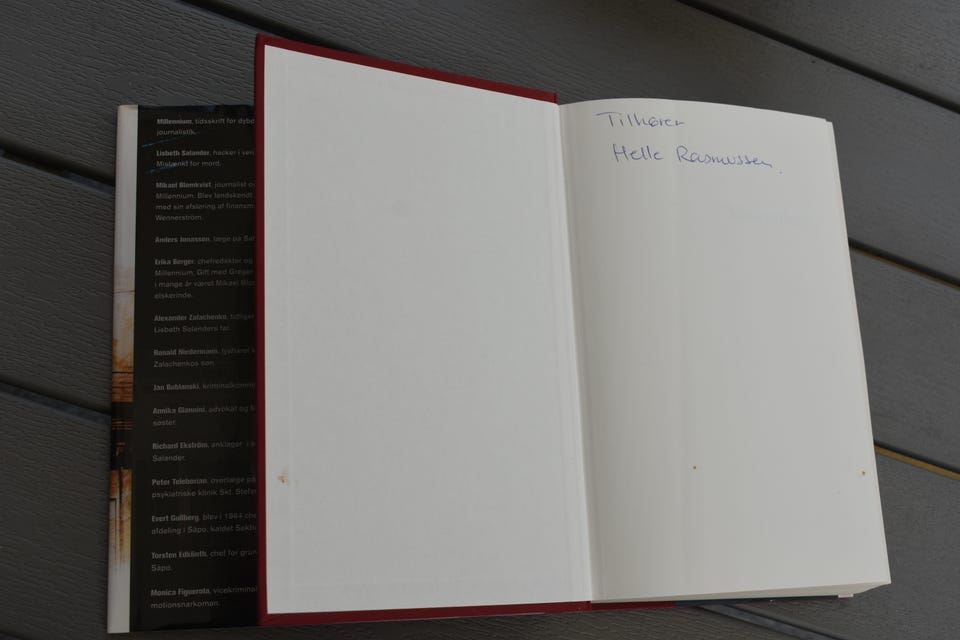 Millennium, tidsskrift for dybd
journalistik.
Lisbeth Salander, hacker i ven
Mistænkt for mord.
Mikael Blomkvist, journalist og
Millennium. Blev landskendt
med sin afsløring af finansm
Wennerström.
Anders Jonasson, læge på Sa
Erika Berger, chefredaktør og
Millennium. Gift med Greger
i mange år været Mikael Blo
elskerinde.
Alexander Zalachenko, tidliger
Lisbeth Salanders far.
Ronald Niedermann, lyshåret k
Zalachenkos søn.
Jan Bublanski, kriminalkomm
Annika Giannini, advokat og M
søster.
Richard Ekström, anklager i s
Salander.
Peter Teleborian, overlæge på
psykiatriske klinik Skt. Stefa
Evert Gullberg, blev i 1964 che
afdeling i Säpo, kaldet Sekti
Torsten Edklinth, chef for grun
Säpo.
Monica Figuerola, vicekriminal
motionsnarkoman.
Tilhører
Helle Rasmussen.